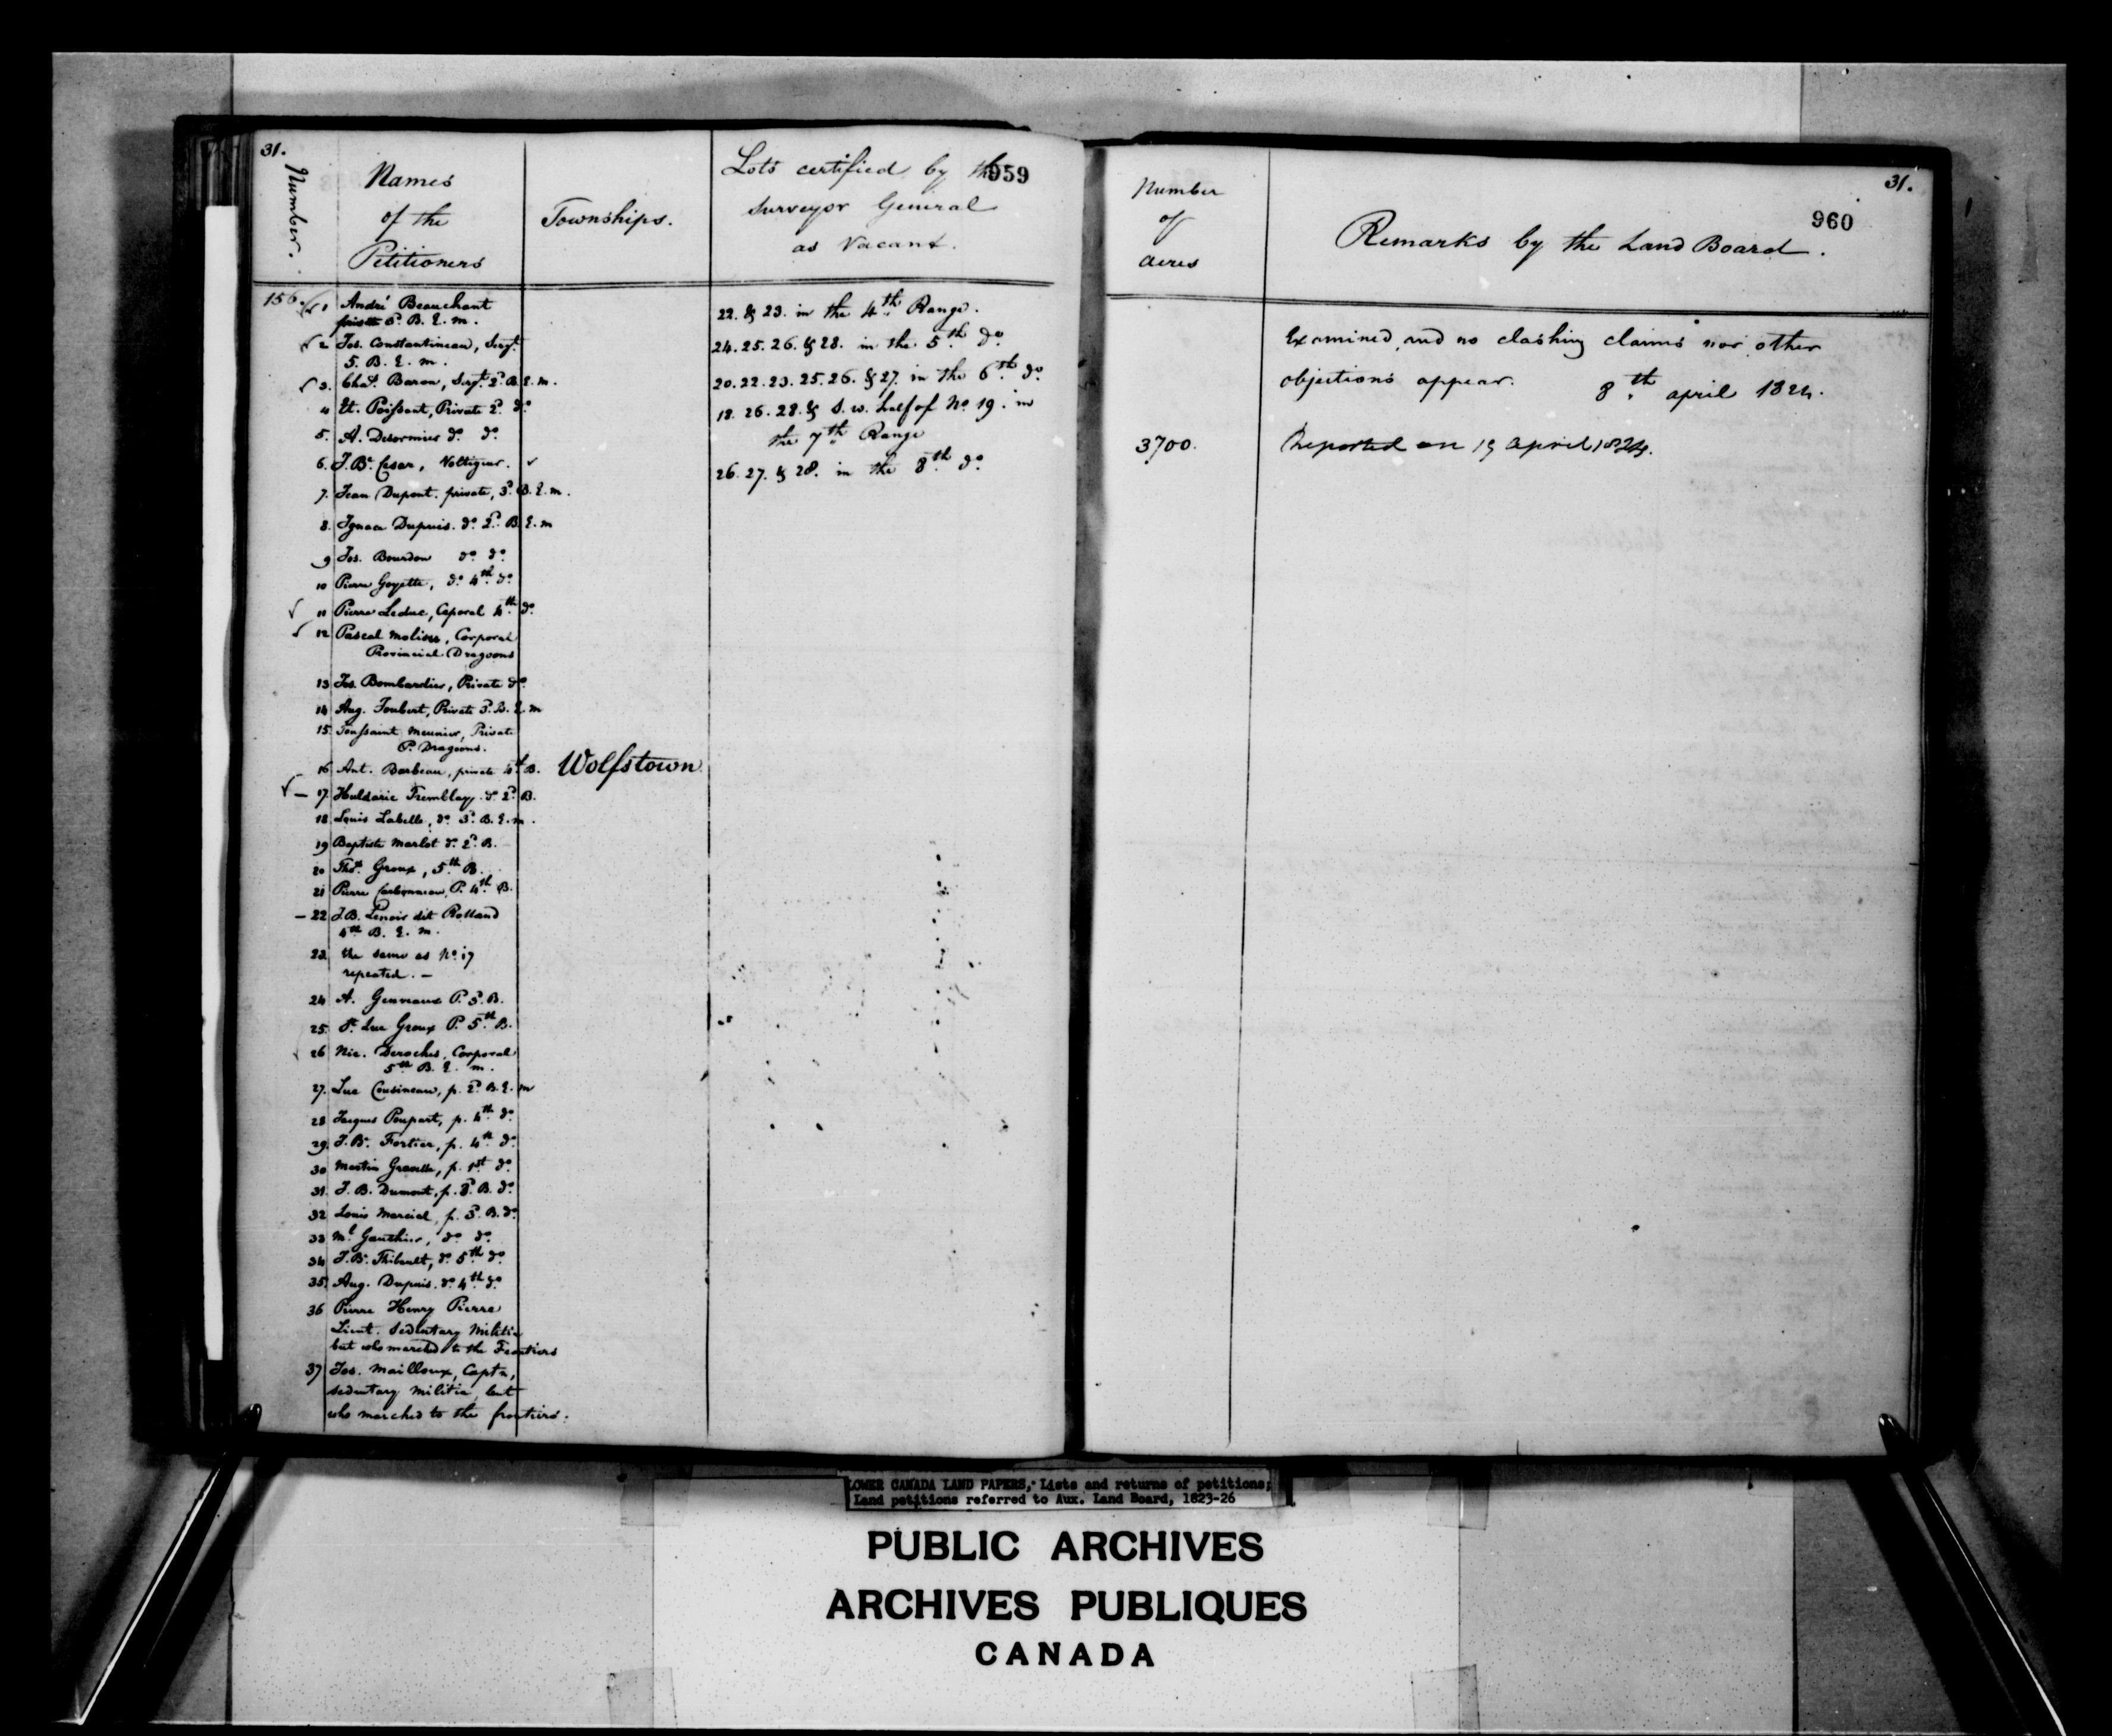 31.
Number.
Names
of the
Petitioners
Townships.
Lots certified by the
Surveyor General
as Vacant.
959
156. 1 André Beauchant
private 5. B. E. m.
2 Jos. Constantineau, Sergt.
5. B. E. m.
3. Chas. Baron, Sergt. 2d. B. E. m.
4 Et. Poissant, Private 2d. do.
5. A. Desormier do. do.
6. J. Bt. Cesar, Voltigeur.
7. Jean Dupont. private, 3d. B. E. m.
8. Ignace Dupuis. do. 2d. B. E. m
9 Jos. Bourdon do. do.
10 Pierre Goyette, do. 4th. do.
11 Pierre Leduc, Caporal 4th do.
12 Pascal Molieur, Corporal
Provincial Dragoons
13 Jos. Bombardier, Private do.
14 Aug. Joubert, Private 3d. B. E. m
15. Toussaint Meunier, Private
P. Dragoons.
16 Ant. Barbeau, private 4th B.
17. Huldaric Tremblay. do. 2d. B.
18. Louis Labelle, do. 3d. B. E. m.
19 Baptiste Marlot do. 2d. B.
20 Thos. Groux, 5th B.
21 Pierre Carbonneau P. 4th. B.
22 J. B. Lenoir dit Rolland
4th B. E. m.
23. the same as No. 17
repeated. —
24 A. P. 3d. B.
25. St. Luc Groux P. 5th B.
26 Nic. Deroches, Corporal
5th B. E. m.
27. Luc Cousineau, p. 2d. B. E. m
28 Jacques Poupart, p. 4th do.
29. J. Bt. Fortier, p. 4th do.
30 Martin Gravelle, p. 1st do.
31. J. B. Dumont, p. 3d. B. do.
32 Louis Marcial, p. 3d. B. do.
33 Ml. Gauthier, do. do.
34 J. Bt. Thibault, do. 5th do.
35. Aug. Dupuis. do. 4th do.
36 Pierre Henry Pierre
Lieut. Sedentary Militia
but who marched to the Frontiers
37 Jos. Mailloux, Captn,
sedentary militia, but
who marched to the frontiers.
Wolfstown
22. & 23. in the 4th Range.
24. 25. 26. & 28. in the 5th do.
20. 22. 23. 25. 26. & 27. in the 6th do.
18. 26. 28. & S. W. half of No. 19. in
the 7th Range
26. 27. & 28. in the 8th do.
Number
of
acres
Remarks by the Land Board.
31.
960
Examined and no clashing claims nor other
objections appear. 8th april 1824.
3700. Reported on 19 april 1824.
LOWER CANADA LAND PAPERS; Lists and returns of petitions;
Land petitions referred to Aux. Land Board, 1823-26
PUBLIC ARCHIVES
ARCHIVES PUBLIQUES
CANADA